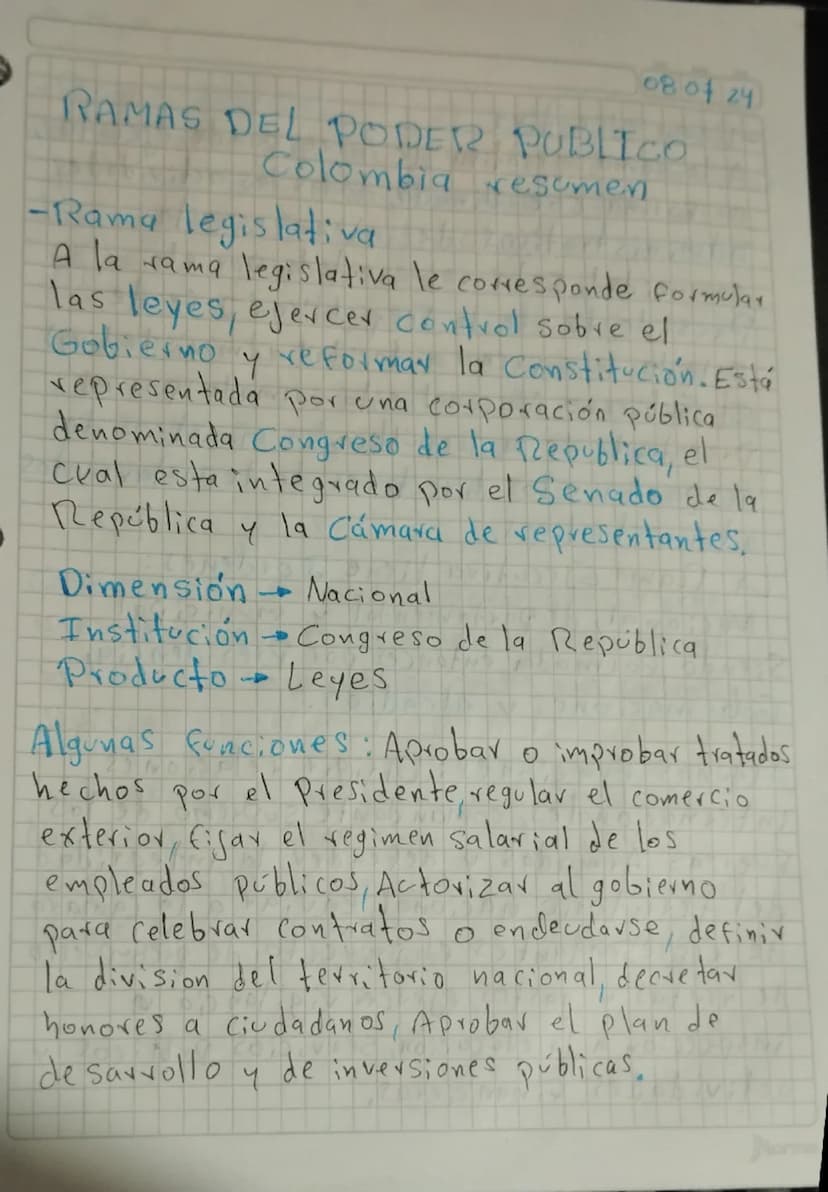 08 07 24
RAMAS DEL PODER PUBLICO
Colombia resumen
-Rama legislativa
A la rama legislativa le corresponde formular
las leyes, ejercer control sobre el
Gobierno y reformar la Constitución. Está
representada por una corporación pública
denominada Congreso de la Republica, el
cual esta integrado por el Senado de la
República y la Cámara de representantes.
Dimensión → Nacional
Institución → Congreso de la República
Producto → Leyes
Algunas funciones: Aprobar o improbar tratados
hechos por el Presidente, regular el comercio
exterior, fijar el regimen salarial de los
empleados públicos, Actorizar al gobierno
para celebrar contratos o endeudarse, definir
la division del territorio nacional, decretar
honores a ciudadanos, Aprobar el plan de
desarrollo y de inversiones públicas.